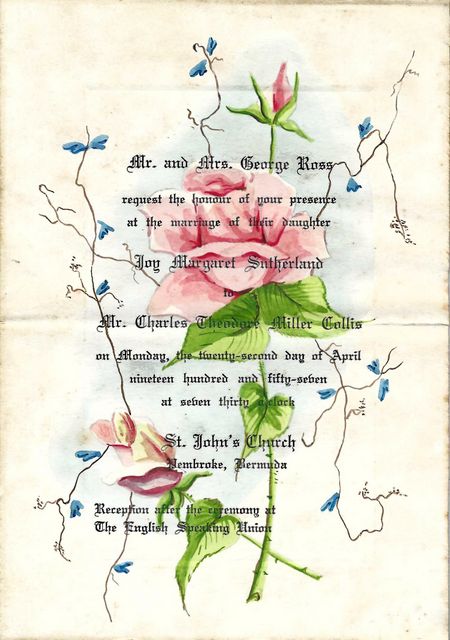 Mr. and Mrs. George Ross
request the honour of your presence
at the marriage of their daughter
Joy Margaret Sutherland
to
Mr. Charles Theodore Miller Collis
on Monday, the twenty-second day of April
nineteen hundred and fifty-seven
at seven thirty o'clock
St. John's Church
Pembroke, Bermuda
Reception after the ceremony at
The English Speaking Union